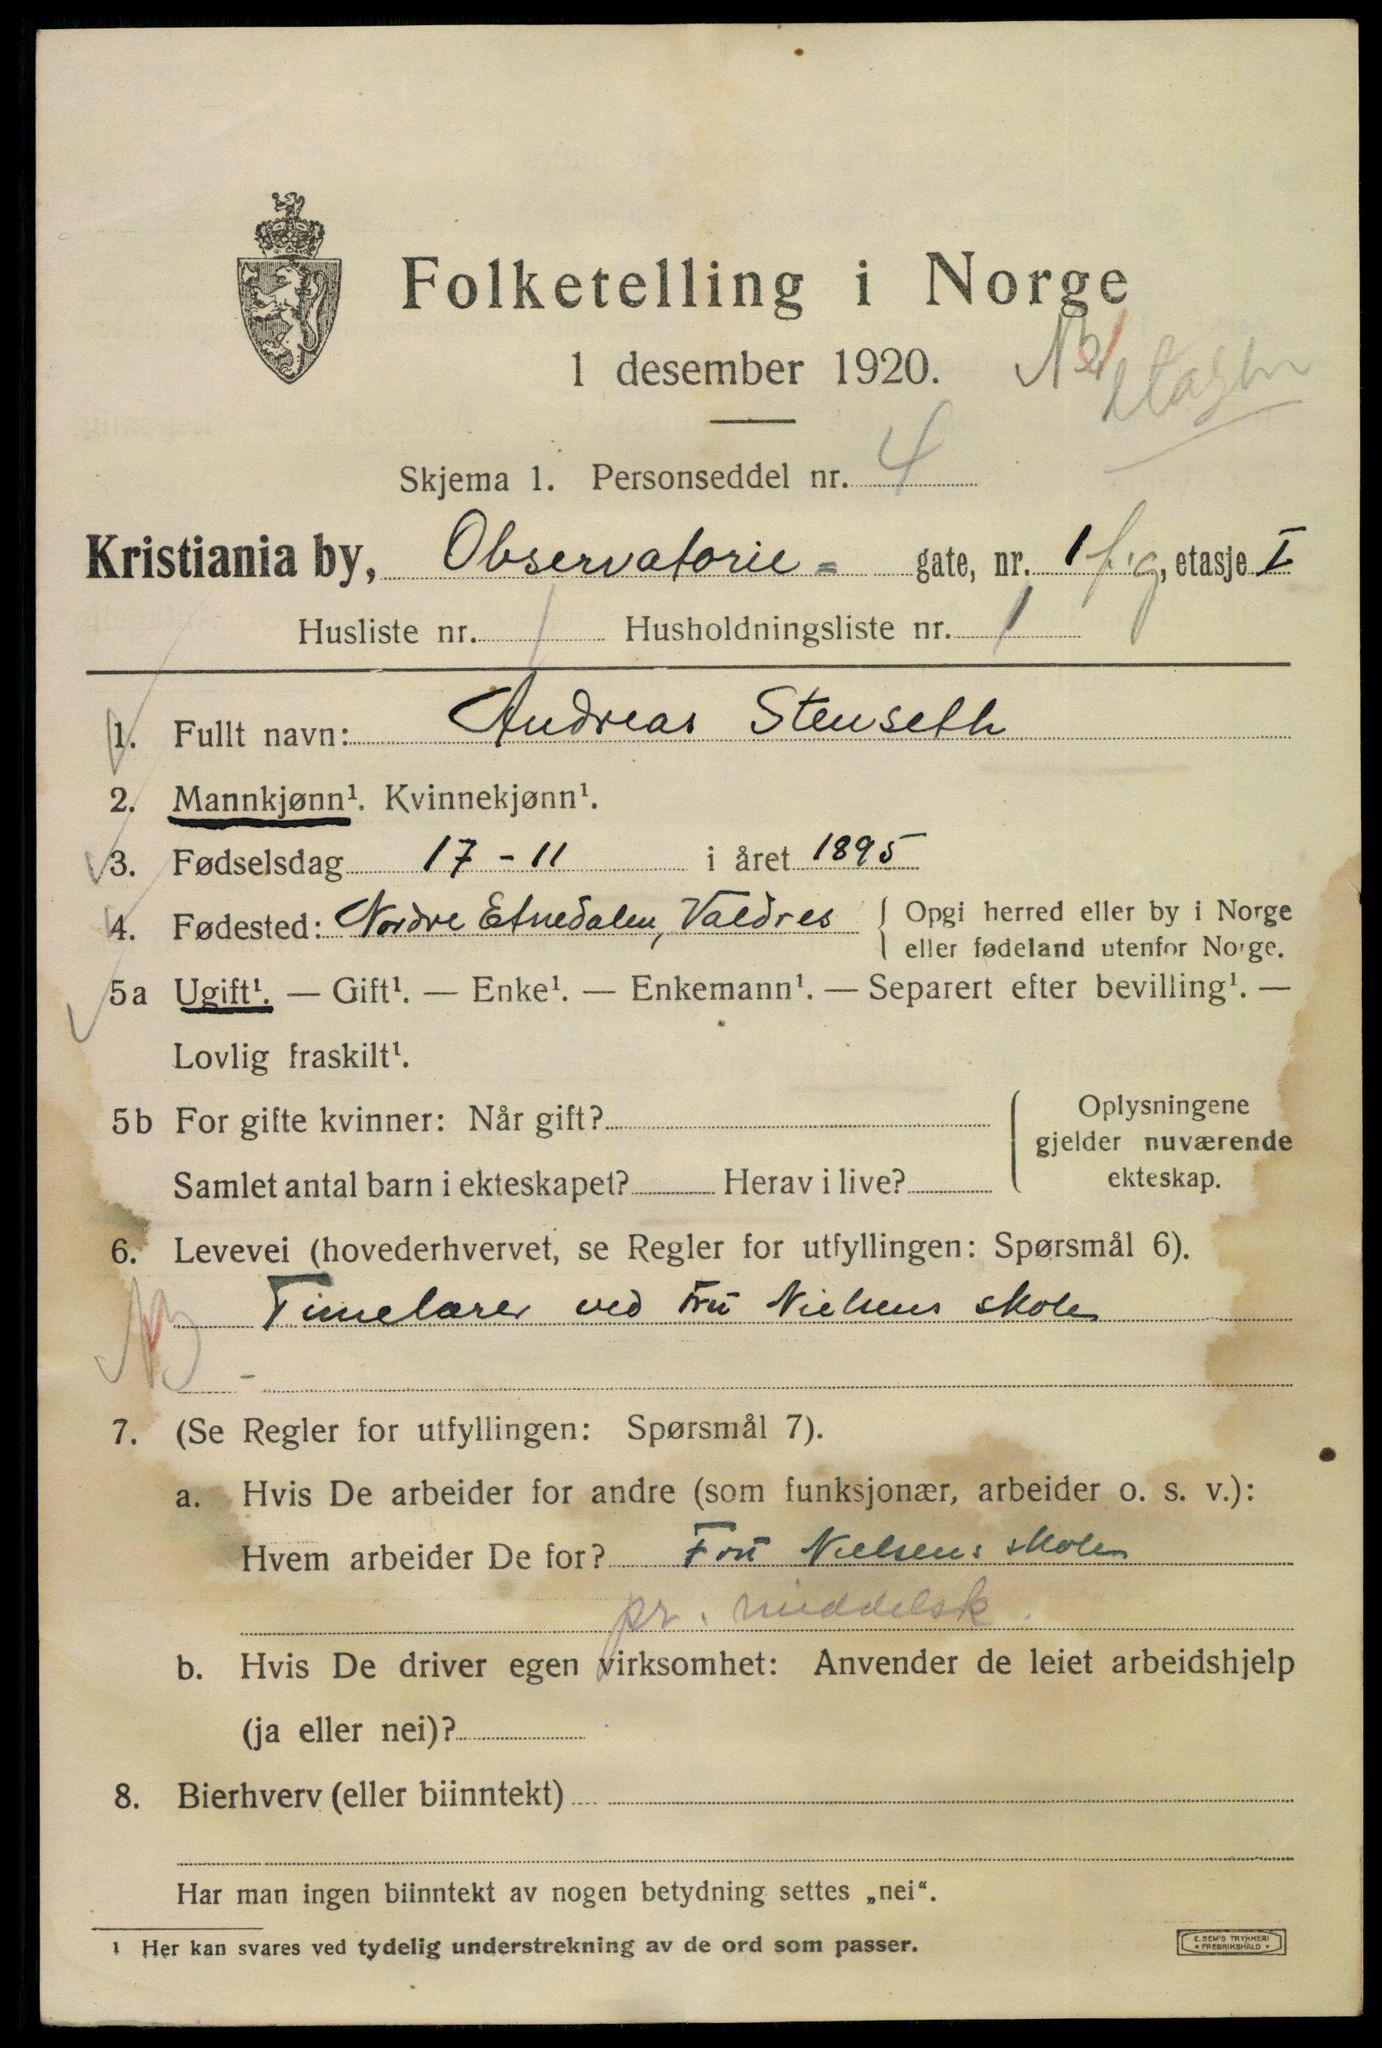 Folketelling i Norge
1 desember 1920.
Skjema 1. Personseddel nr. 4
Kristiania by, Observatorie- gate, nr. 1 f.g, etasje I
Husliste nr. 1 Husholdningsliste nr. 1
1. Fullt navn: Andreas Stenseth
2. Mannkjønn¹. Kvinnekjønn¹.
3. Fødselsdag 17-11 i året 1895
4. Fødested: Nordre Etnedalen, Valdres { Opgi herred eller by i Norge
eller fødeland utenfor Norge.
5a Ugift¹. — Gift¹. — Enke¹. — Enkemann¹. — Separert efter bevilling¹. —
Lovlig fraskilt¹.
5b For gifte kvinner: Når gift?
Samlet antal barn i ekteskapet? Herav i live?
Oplysningene
gjelder nuværende
ekteskap.
6. Levevei (hovederhvervet, se Regler for utfyllingen: Spørsmål 6).
Timelærer ved Frú Nielsens skole
7. (Se Regler for utfyllingen: Spørsmål 7).
a. Hvis De arbeider for andre (som funksjonær, arbeider o. s. v.):
Hvem arbeider De for? Frú Nielsens skole
pr. middelsk.
b. Hvis De driver egen virksomhet: Anvender de leiet arbeidshjelp
(ja eller nei)?
8. Bierhverv (eller biinntekt)
Har man ingen biinntekt av nogen betydning settes „nei“.
¹ Her kan svares ved tydelig understrekning av de ord som passer.
E. SEM'S TRYKKERI
• FREDRIKSHALD •